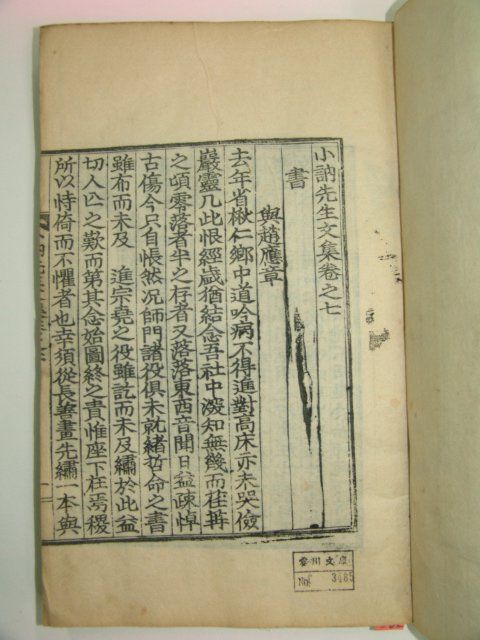 小訥先生文集卷之七
書
與趙應章
去年省楸仁鄉中道吟病不得進對高床亦未哭儉
巖靈几此恨經歲猶結念吾社中潑知無幾而荏苒
之頃零落者半之存者又落落東西音聞日益疎悼
古傷今只自悵然况師門諸役俱未就緒哲命之書
雖布而未及 進宗堯之役雖訖而未及繡於此益
切人亡之歎而第其念始圖終之責惟座下在焉稷
所以恃倚而不懼者也幸須從長善畫先繡一本與
文庫
No. 3485